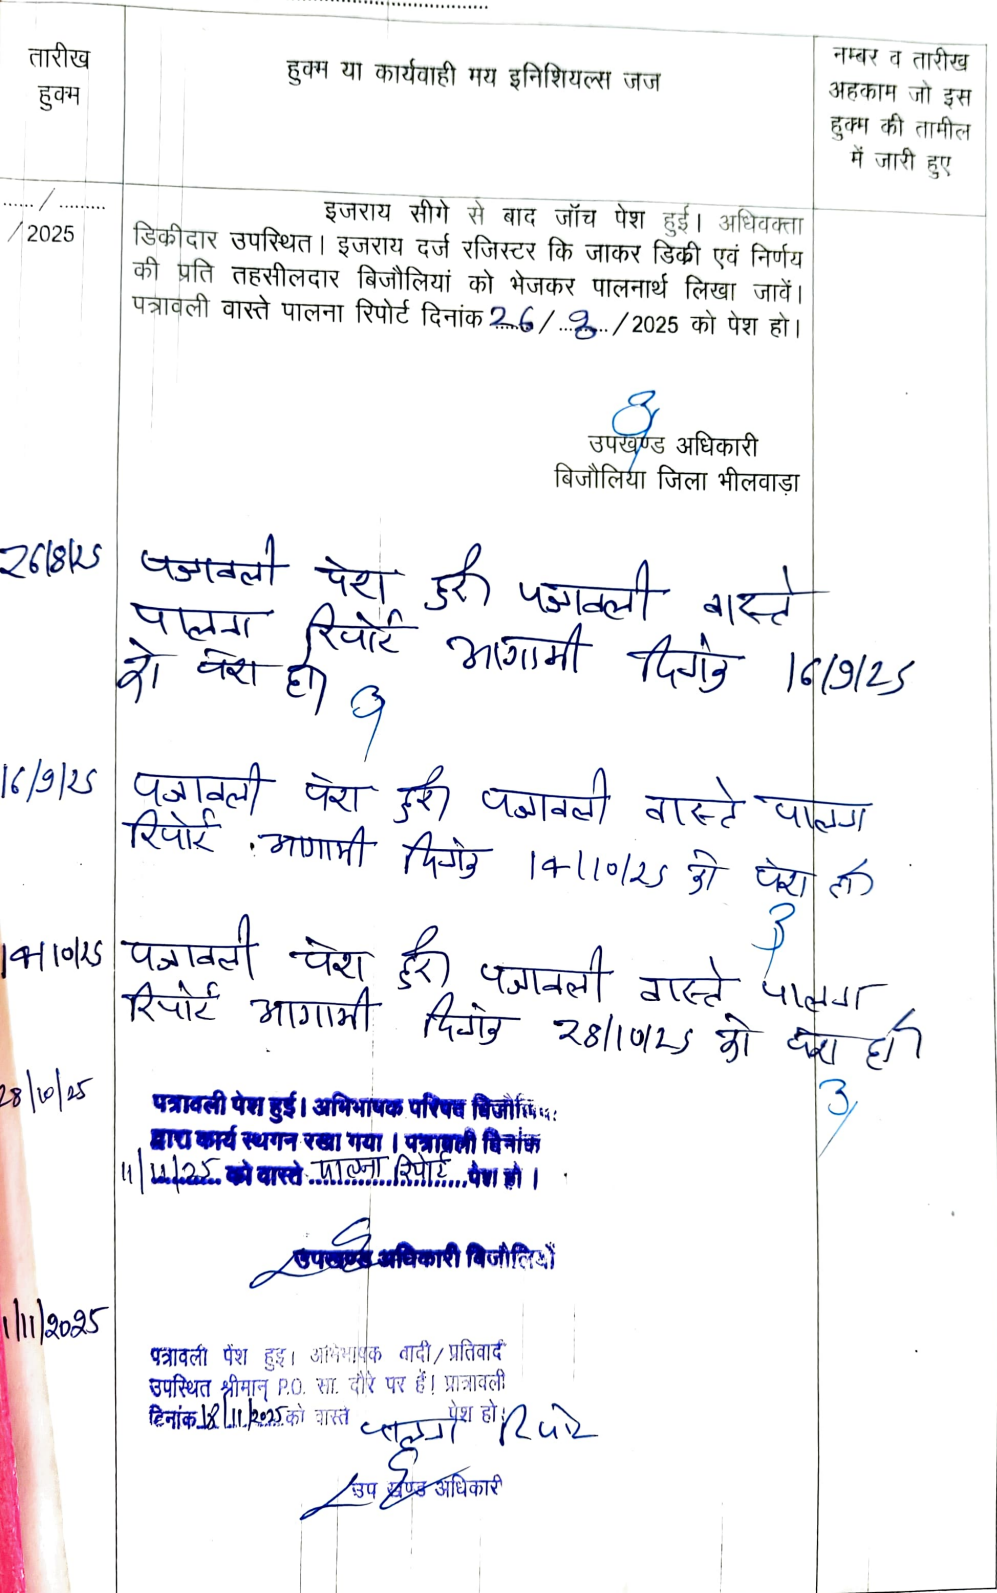 तारीख
हुक्म
हुक्म या कार्यवाही मय इनिशियल्स जज
नम्बर व तारीख
अहकाम जो इस
हुक्म की तामील
में जारी हुए
....../.........
/2025
इजराय सीगे से बाद जॉच पेश हुई। अधिवक्ता
डिकीदार उपस्थित। इजराय दर्ज रजिस्टर कि जाकर डिकी एवं निर्णय
की प्रति तहसीलदार बिजौलियां को भेजकर पालनार्थ लिखा जावें।
पत्रावली वास्ते पालना रिपोर्ट दिनांक 26/8/2025 को पेश हो।
उपखण्ड अधिकारी
बिजौलिया जिला भीलवाड़ा
26/8/25 पत्रावली पेश हुई पत्रावली वास्ते
पालना रिपोर्ट आगामी दिनांक 16/9/25
को पेश हो
16/9/25 पत्रावली पेश हुई पत्रावली वास्ते पालना
रिपोर्ट आगामी दिनांक 14/10/25 को पेश हो
14/10/25 पत्रावली पेश हुई पत्रावली वास्ते पालना
रिपोर्ट आगामी दिनांक 28/10/25 को पेश हो
28/10/25
पत्रावली पेश हुई। अभिभाषक परिषद बिजौलिया
द्वारा कार्य स्थगन रखा गया। पत्रावली दिनांक
11/11/25 को वास्ते पालना रिपोर्ट पेश हो।
उपखण्ड अधिकारी बिजौलियाँ
1/11/2025
पत्रावली पेश हुइ। अभिभाषक वादी/प्रतिवादी
उपस्थित श्रीमान् P.O. सा. दौरे पर हैं। प्रात्रावली
दिनांक 18/11/2025 को वास्ते पेश हो।
पालना रिपोर्ट
उप खण्ड अधिकारी